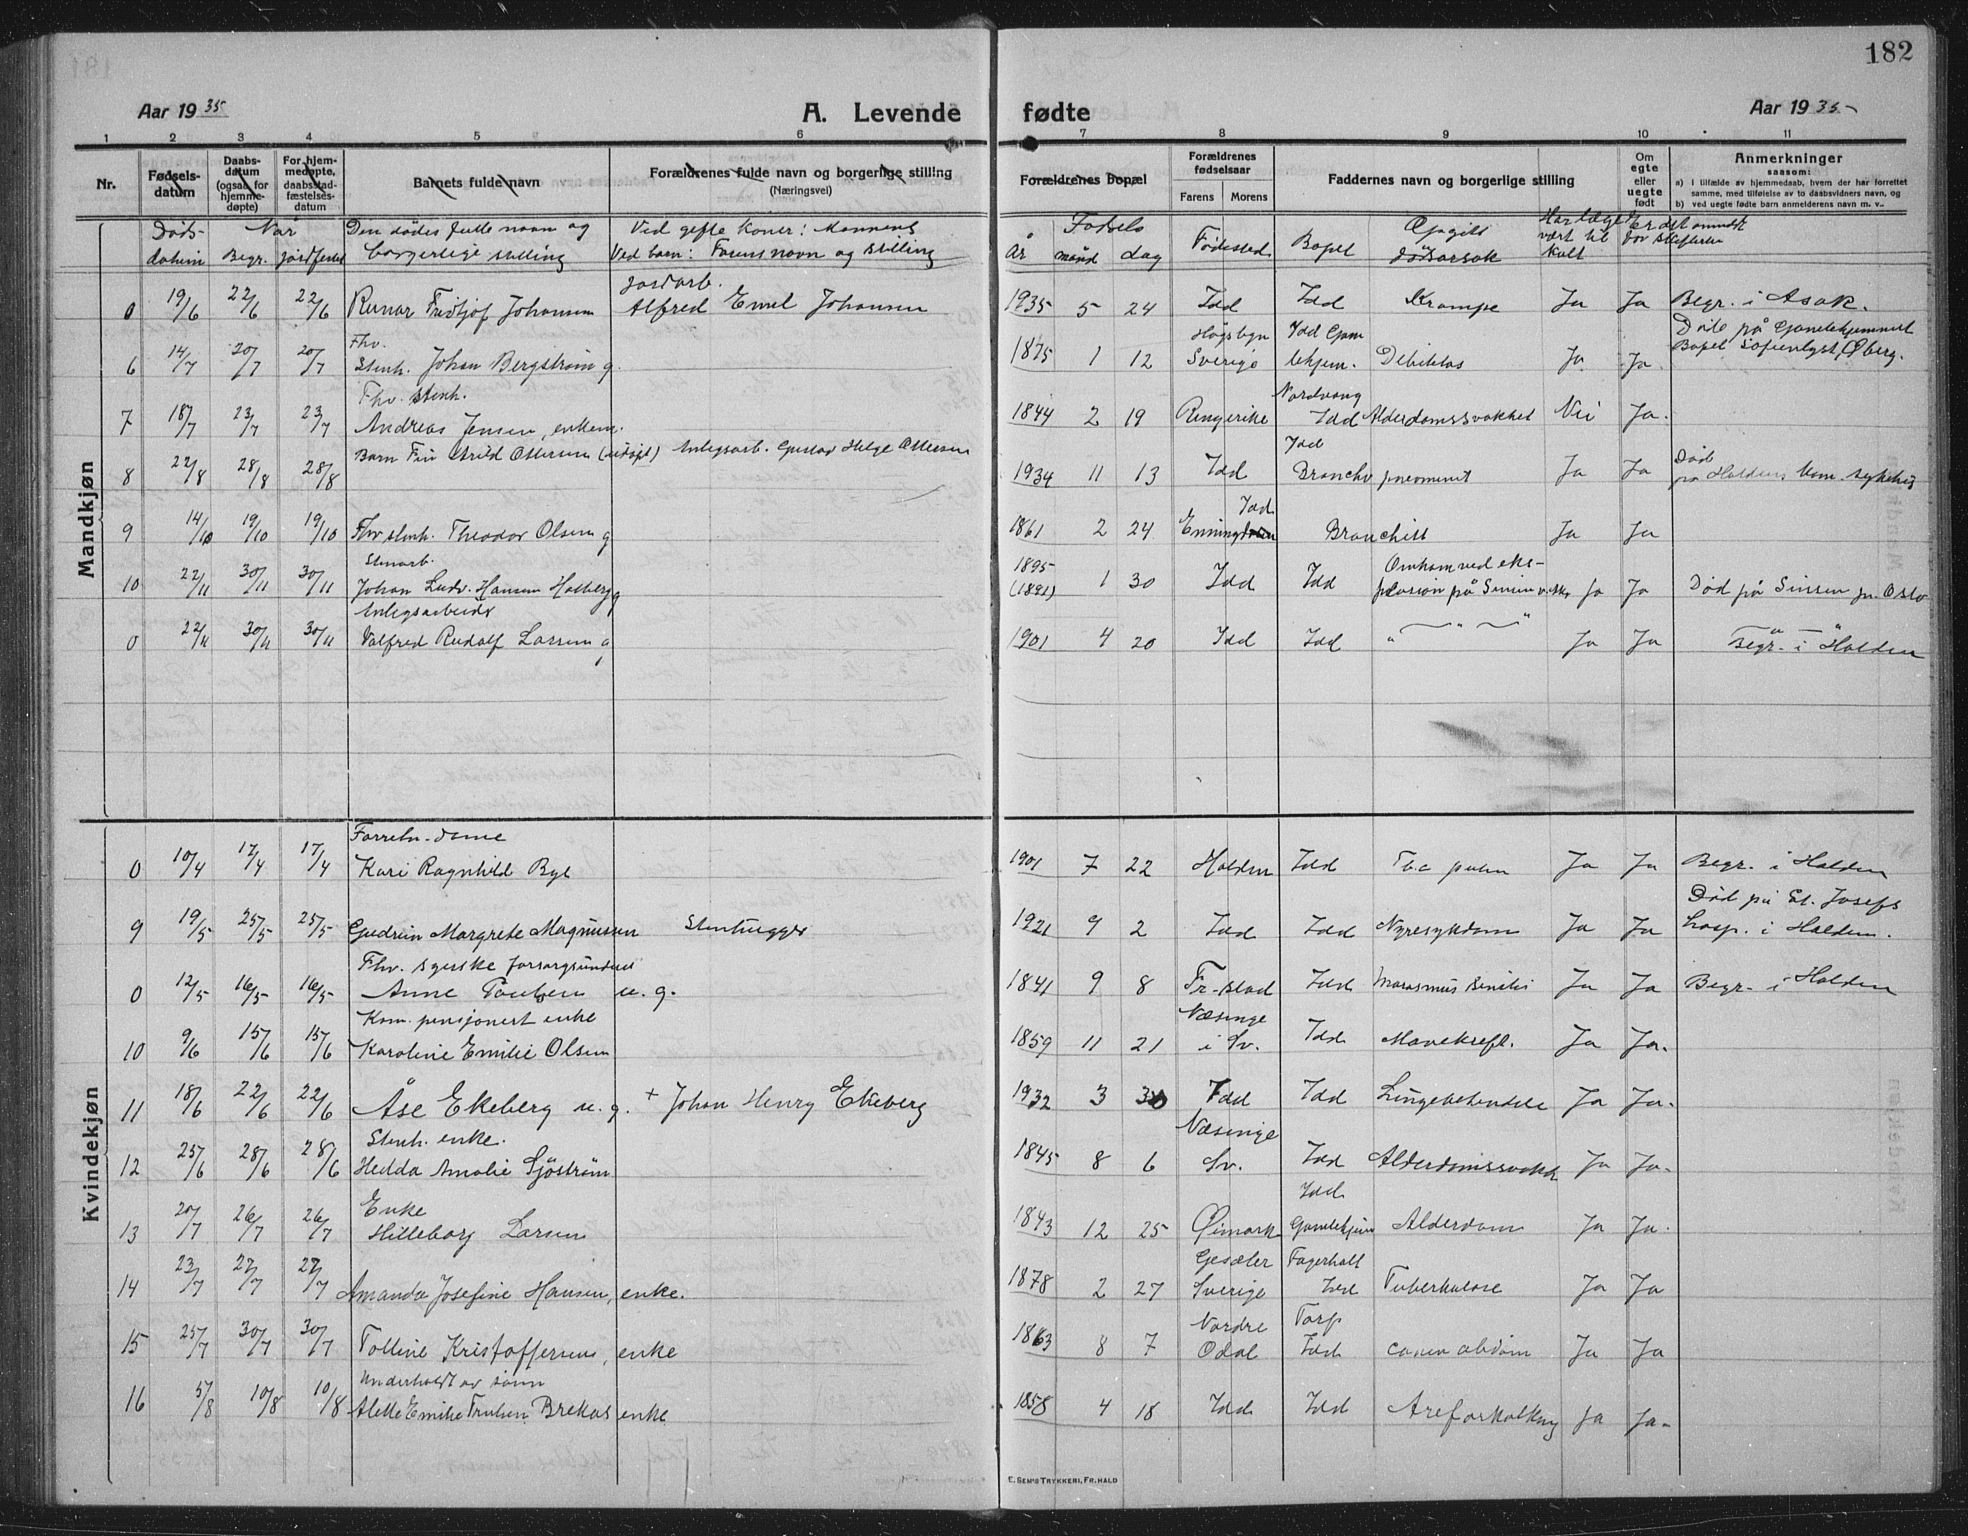 182
Aar 1935
A. Levende fødte
Aar 1935
1 2 3 4 5 6 7 8 9 10 11
Nr.
Fødsels-
datum
Daabs-
datum
(ogsaa for
hjemme-
døpte)
For hjem-
medøpte,
daabsstad-
fæstelses-
datum
Barnets fulde navn
Forældrenes fulde navn og borgerlige stilling
(Næringsvei)
Forældrenes bopæl
Forældrenes
fødselsaar
Farens Morens
Faddernes navn og borgerlige stilling
Om
egte
eller
uegte
født
Anmerkninger
saasom:
a) I tilfælde av hjemmedaab, hvem der har forrettet
samme, med tilføielse av to daabsvidners navn, og
b) ved uegte fødte barn anmelderens navn m. v..
Døds-
datum
Når
Begr. jordfestet
Den dødes fulle navn og
borgerlige stilling
Ved gifte koner: Mannens
Ved barn: Farens navn og stilling
Fødsels
År månd dag
Fødested
Bopel
Opgitt
dødsårsak
Har læge
vært til
kalt
Er det anmeldt
for skifteretten
Mandkjøn
jordarb.
0 19/6 22/6 22/6 Runar Fridtjof Johansen Alfred Emil Johansen 1935 5 24 Idd Idd Krampe Ja Ja Begr. i Asak.
Fhv.
6 14/7 20/7 20/7 Stenh. Johan Bergstrøm g. 1875 1 12 Högsbyn Sverige Idd Gam lehjem. Debilitas Ja Ja. Døde på Gamlehjemmet
Bopel Sofienlyst, Øberg.
Fhv. stenh.
7 18/7 23/7 23/7 Andreas Jensen, enkem. 1844 2 19 Ringerike Nordvang Idd Alderdomssvakhet Nei Ja.
8 22/8 28/8 28/8 Barn Fin Arild Ottersen (udøpt) Anlegsarb. Gustav Helge Ottersen 1934 11 13 Idd Idd Ja Ja Død
på Haldens kom. sykehus
9 14/10 19/10 19/10 Fhv stenh. Theodor Olsen g 1861 2 24 Enningdalen Idd Bronchitt Ja Ja
Stenarb.
10 22/11 30/11 30/11 Johan Ludv. Hansen Holberg g 1895 (1891) 1 30 Idd Idd Omkom ved eks-
plosion på Sinsen Ja Ja Død på Sinsen pr. Oslo
Anlegsarbeider
0 22/11 30/11 30/11 Valfred Rudolf Larsen g 1901 4 20 Idd Idd " " Ja Ja " "
Begr. i Halden
Kvindekjøn
Forretn. dame
0 10/4 17/4 17/4 Kari Ragnhild Bye 1901 7 22 Halden Idd Tbc pulm Ja Ja Begr. i Halden
9 19/5 25/5 25/5 Gudrun Margrete Magnussen Stenhugger 1921 9 2 Idd Idd Nyresykdom Ja Ja Død på St. Josefs
hosp. i Halden.
Fhv. syerske forsorgsunderst
0 12/5 16/5 16/5 Anne Paulsen u. g. 1841 9 8 Fr.stad Idd Marasmus senilis Ja Ja Begr. i Halden
Kom. pensjonert enke
10 9/6 15/6 15/6 Karoline Emilie Olsen 1859 11 21 Næsinge i Sv. Idd Mavekreft. Ja Ja.
11 18/6 22/6 22/6 Åse Ekeberg u. g. + Johan Henry Ekeberg 1932 3 30 Idd Idd Lungebetendelse Ja Ja.
Stenh. enke.
12 25/6 28/6 28/6 Hedda Amalie Sjöström 1845 8 6 Næsinge Sv. Idd Alderdomssvakh Ja Ja.
Enke
13 20/7 26/7 26/7 Hilleborg Larsen 1843 12 25 Øimark Idd Gamlehjem Alderdom Ja Ja.
14 23/7 27/7 27/7 Amanda Josefine Hansen, enke. 1878 2 27 Gesäter Sverige Fagerholt Idd Tuberkulose Ja Ja
15 25/7 30/7 30/7 Tolline Kristoffersen, enke 1863 8 7 Nordre Odal Torp Idd Ja Ja
Underholdt av sønn
16 5/8 10/8 10/8 Alette Emilie Trulsen Brekas enke 1858 4 18 Idd Idd Areforkalkng Ja Ja.
E. SEM'S TRYKKERI, FR.HALD